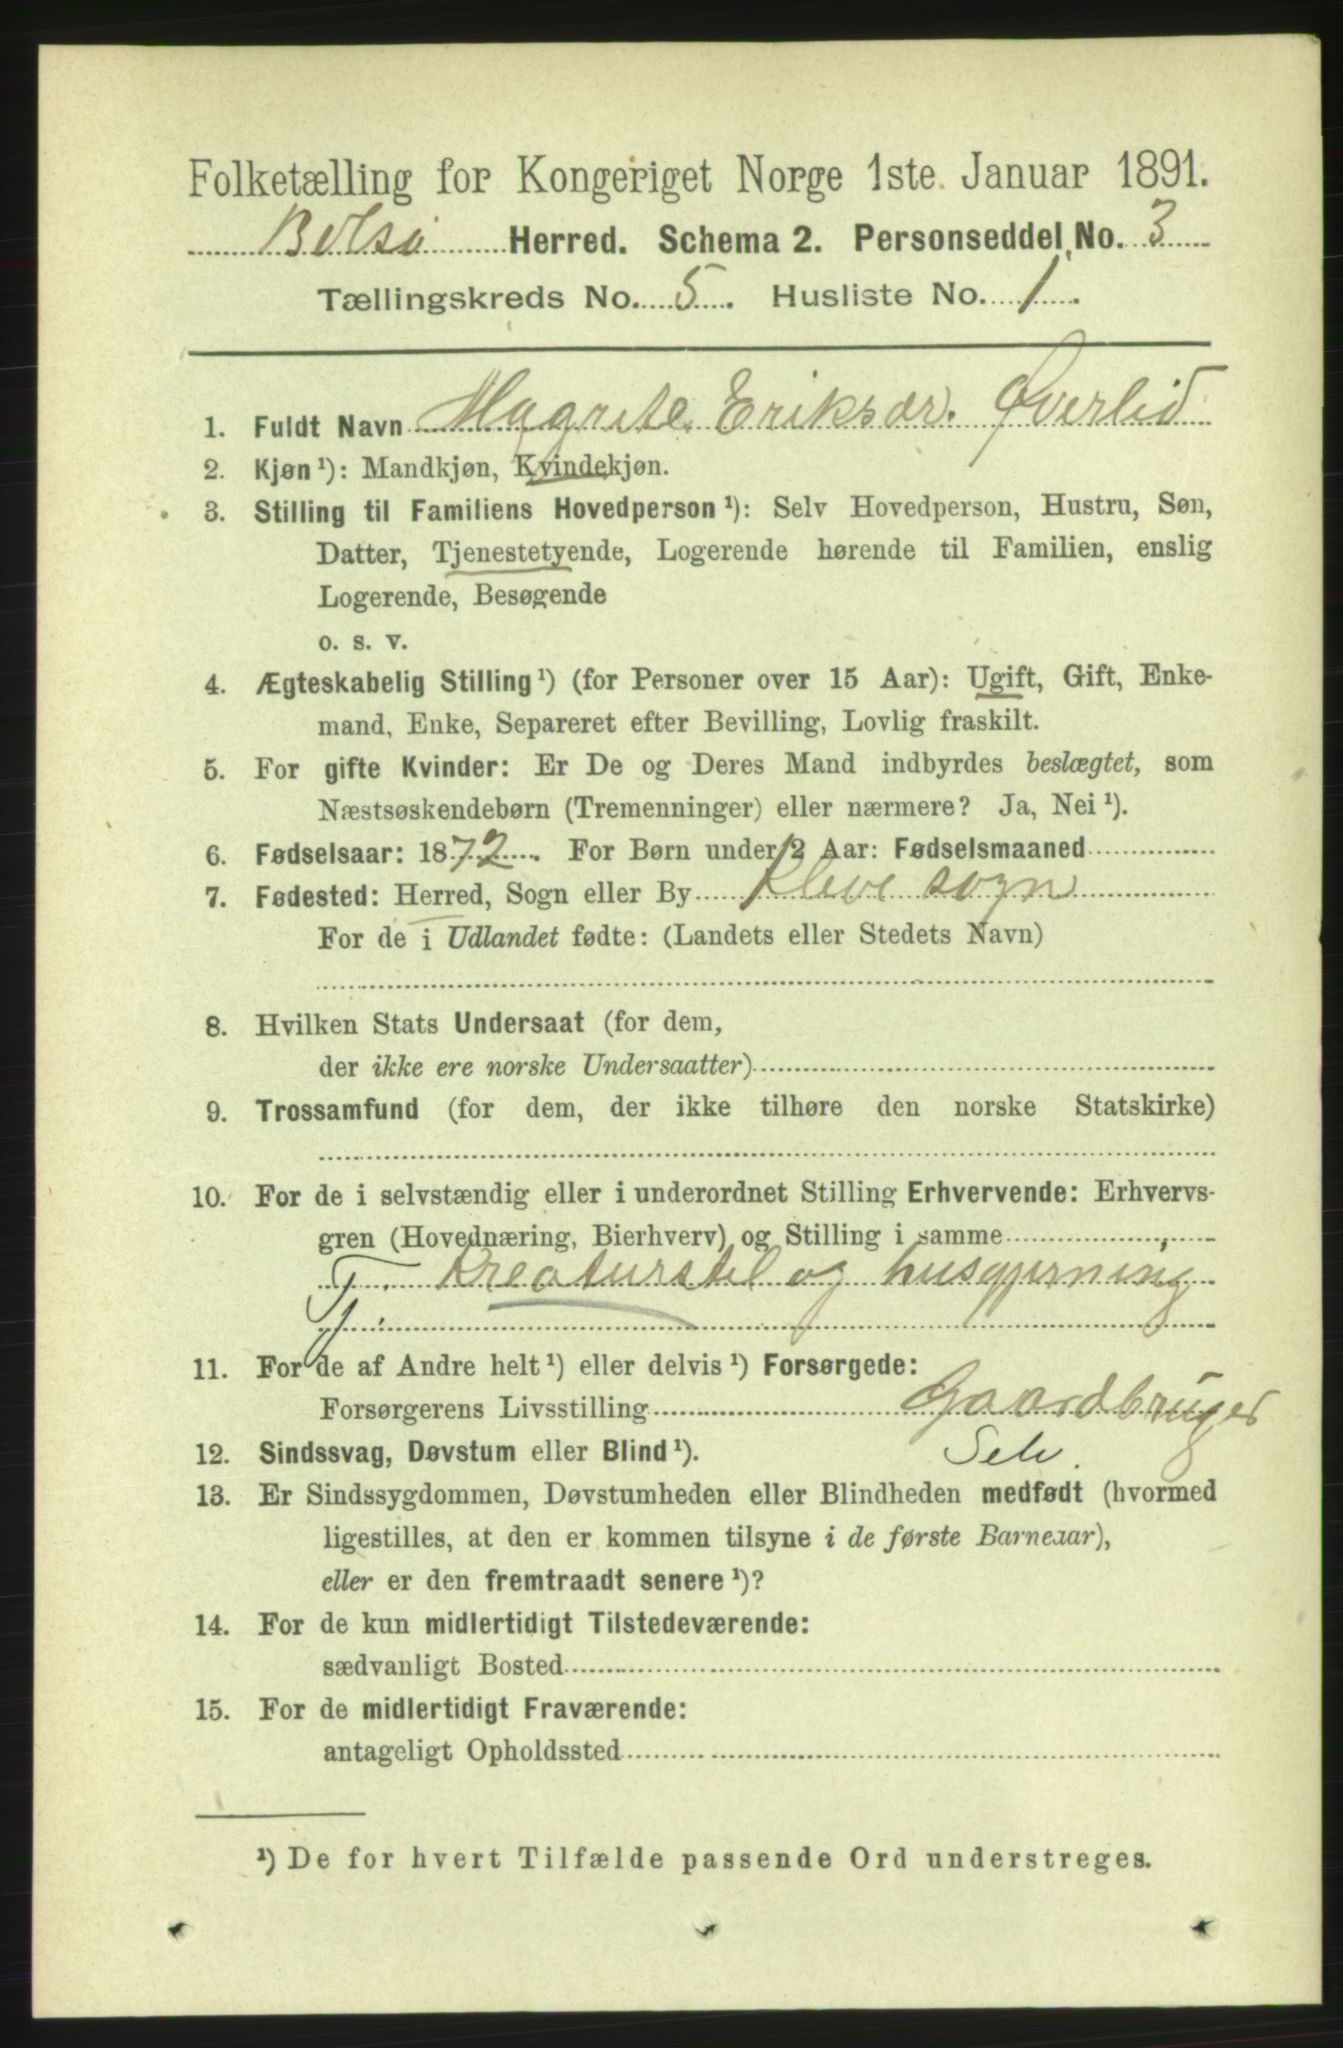 Folketælling for Kongeriget Norge 1ste Januar 1891.
Bolsø Herred. Schema 2. Personseddel No. 3
Tællingskreds No. 5. Husliste No. 1.
1. Fuldt Navn Magrete Eriksdr. Øverlid
2. Kjøn ¹): Mandkjøn, Kvindekjøn.
3. Stilling til Familiens Hovedperson ¹): Selv Hovedperson, Hustru, Søn,
Datter, Tjenestetyende, Logerende hørende til Familien, enslig
Logerende, Besøgende
o. s. v.
4. Ægteskabelig Stilling ¹) (for Personer over 15 Aar): Ugift, Gift, Enke-
mand, Enke, Separeret efter Bevilling, Lovlig fraskilt.
5. For gifte Kvinder: Er De og Deres Mand indbyrdes beslægtet, som
Næstsøskendebørn (Tremenninger) eller nærmere? Ja, Nei ¹).
6. Fødselsaar: 1872. For Børn under 2 Aar: Fødselsmaaned
7. Fødested: Herred, Sogn eller By Kleve sogn
For de i Udlandet fødte: (Landets eller Stedets Navn)
8. Hvilken Stats Undersaat (for dem,
der ikke ere norske Undersaatter)
9. Trossamfund (for dem, der ikke tilhøre den norske Statskirke)
10. For de i selvstændig eller i underordnet Stilling Erhvervende: Erhvervs-
gren (Hovednæring, Bierhverv) og Stilling i samme
T. Kreaturstel og husgjerning
11. For de af Andre helt ¹) eller delvis ¹) Forsørgede:
Forsørgerens Livsstilling Gaardbruger
12. Sindssvag, Døvstum eller Blind ¹). Selv.
13. Er Sindssygdommen, Døvstumheden eller Blindheden medfødt (hvormed
ligestilles, at den er kommen tilsyne i de første Barneaar),
eller er den fremtraadt senere ¹)?
14. For de kun midlertidigt Tilstedeværende:
sædvanligt Bosted
15. For de midlertidigt Fraværende:
antageligt Opholdssted
¹) De for hvert Tilfælde passende Ord understreges.